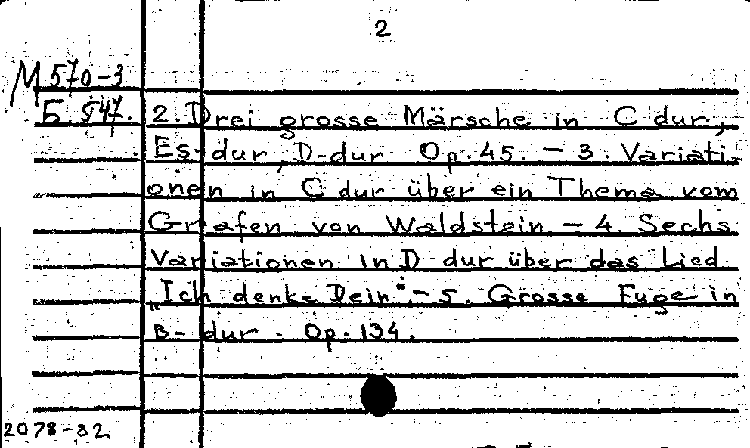 2
М 570-3
Б 947.
2. Drei grosse Märsche in C dur,
Es-dur, D-dur Op. 45. - 3. Variati-
onen in C dur über ein Thema vom
Grafen von Waldstein - 4. Sechs
Variationen in D dur über das Lied
„Ich denke Dein“. - 5. Grosse Fuge in
B-dur. Op. 134.
2078-82